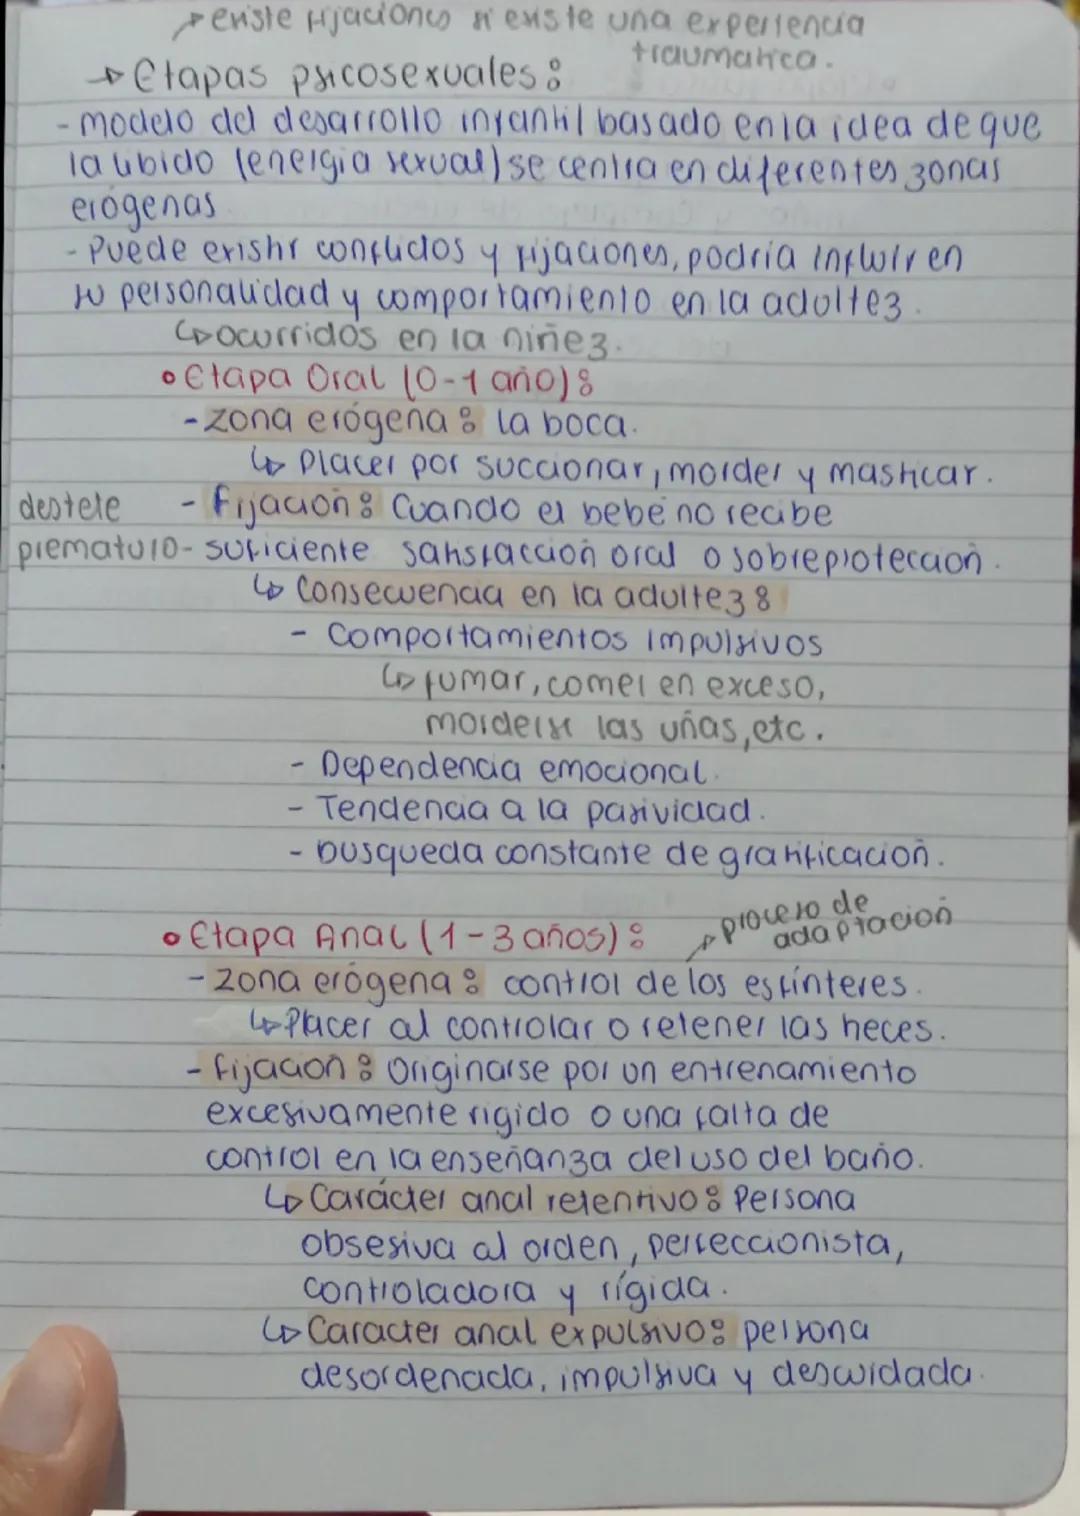 existe fijaciones si existe una experiencia
traumatica.
Etapas psicosexuales:
- modelo del desarrollo infantil basado en la idea de que
la libido (energia sexual) se centra en diferentes zonas
erógenas
- Puede existir conflictos y fijaciones, podria influir en
su personalidad y comportamiento en la adultez.
↳ ocurridos en la niñez.
• Etapa Oral (0-1 año):
- zona erógena: la boca.
↳ Placer por succionar, morder y masticar.
destete - Fijación: Cuando el bebé no recibe
prematuro- suficiente satisfacción oral o sobreprotección.
↳ Consecuencia en la adultez:
- Comportamientos impulsivos
↳ fumar, comer en exceso,
morderse las uñas, etc.
- Dependencia emocional.
- Tendencia a la pasividad.
- busqueda constante de gratificación.
→ proceso de
adaptación
• Etapa Anal (1-3 años):
- zona erógena: control de los esfínteres.
↳ Placer al controlar o retener las heces.
- Fijación: Originarse por un entrenamiento
excesivamente rigido o una falta de
control en la enseñanza del uso del baño.
↳ Carácter anal retentivo: Persona
obsesiva al orden, perfeccionista,
controladora y rígida.
↳ Caracter anal expulsivo: persona
desordenada, impulsiva y descuidada.